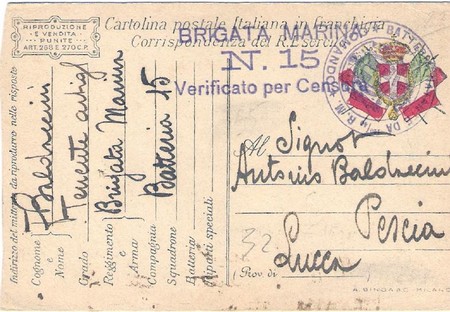 RIPRODUZIONE
E VENDITA
PUNITE
ART. 268 E 270 C.P.
Cartolina postale Italiana in franchigia
Corrispondenza del R. Esercito
BRIGATA MARINA
N. 15
Verificato per Censura
Indirizzo del mittente da riprodurre nella risposta
Cognome e Nome
Baldaccini
Grado
Tenente
Reggimento o Arma
Brigata Marina
Compagnia
Batteria 15
Squadrone
Batteria
Reparti speciali
Al Signor
Antonio Baldaccini
Pescia
32
(Prov. di Lucca